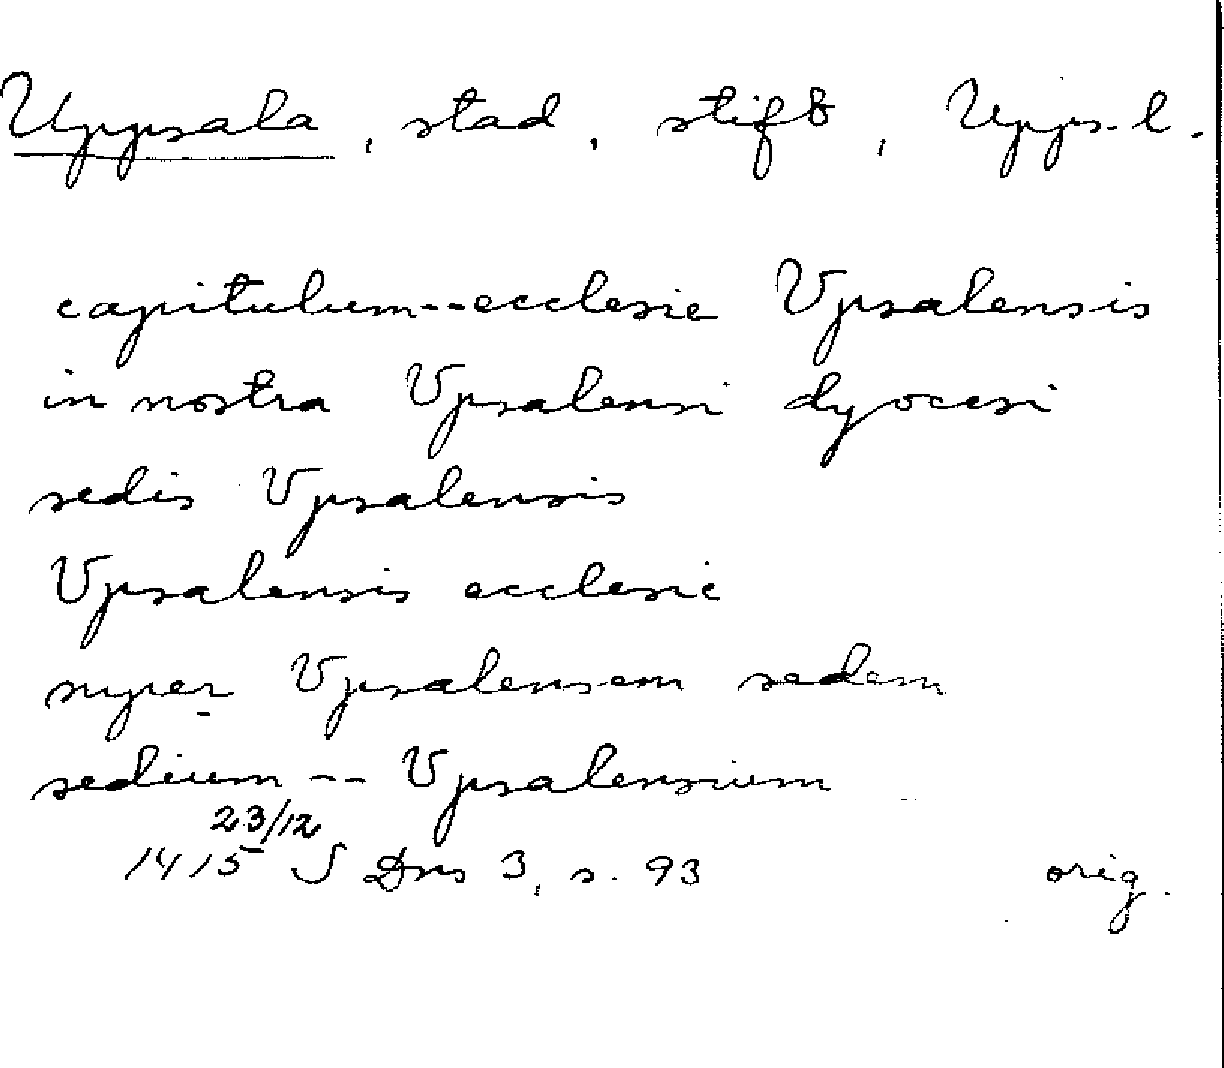 Uppsala, stad, stift, Upps. l.
capitulum--ecclesie Vpsalensis
in nostra Vpsalensi dyocesi
sedis Vpsalensis
Vpsalensis ecclesie
super Vpsalensem sedem
sedium -- Vpsalensium
23/12
1415 S Dns 3, s. 93 orig.